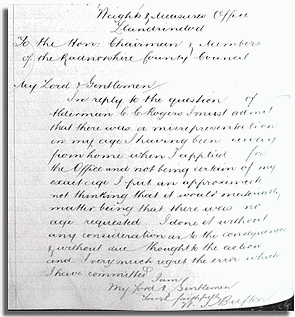 Weights & Measures Office
Llandrindod
To the Hon. Chairman & Members
of the Radnorshire County Council
My Lord & Gentlemen
In reply to the question of
Alderman C. C. Rogers I must admit
that there was a misrepresentation
in my age I having been away
from home when I applied for
the Office and not being certain of my
exact age I put an approximate
not thinking that it would materially
matter being that there was no
age requested I done it without
any consideration as to the consequences
& without due thought to the action
and I very much regret the error which
I have committed
I am
My Lord & Gentlemen
Yours faithfully